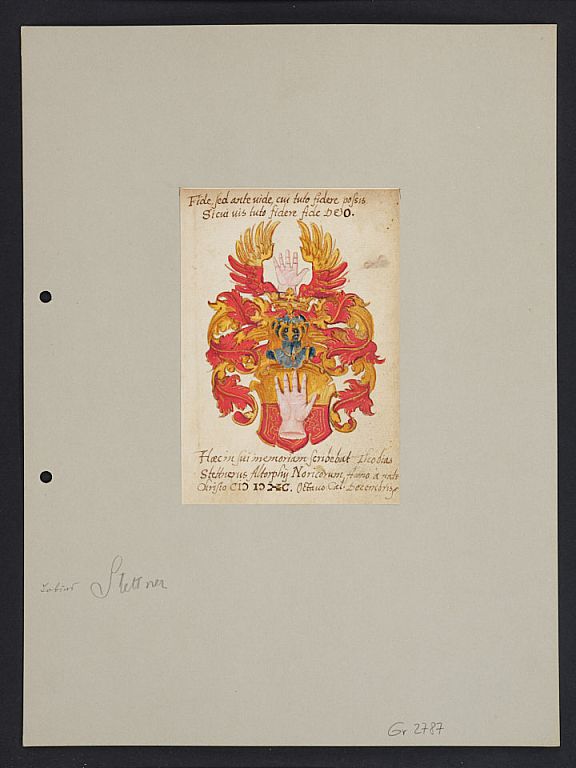 FIde, sed ante uide, cui tuto fidere possis
Si cui uis tuto fidere fide DEO.
Haec in sui memoriam scribebat
Stettnerus Altorphij Noricorum, Anno à nato
Christo CIↃ IↃ XC. Octauo Cal. Decembris
Stettner
Gr 2787